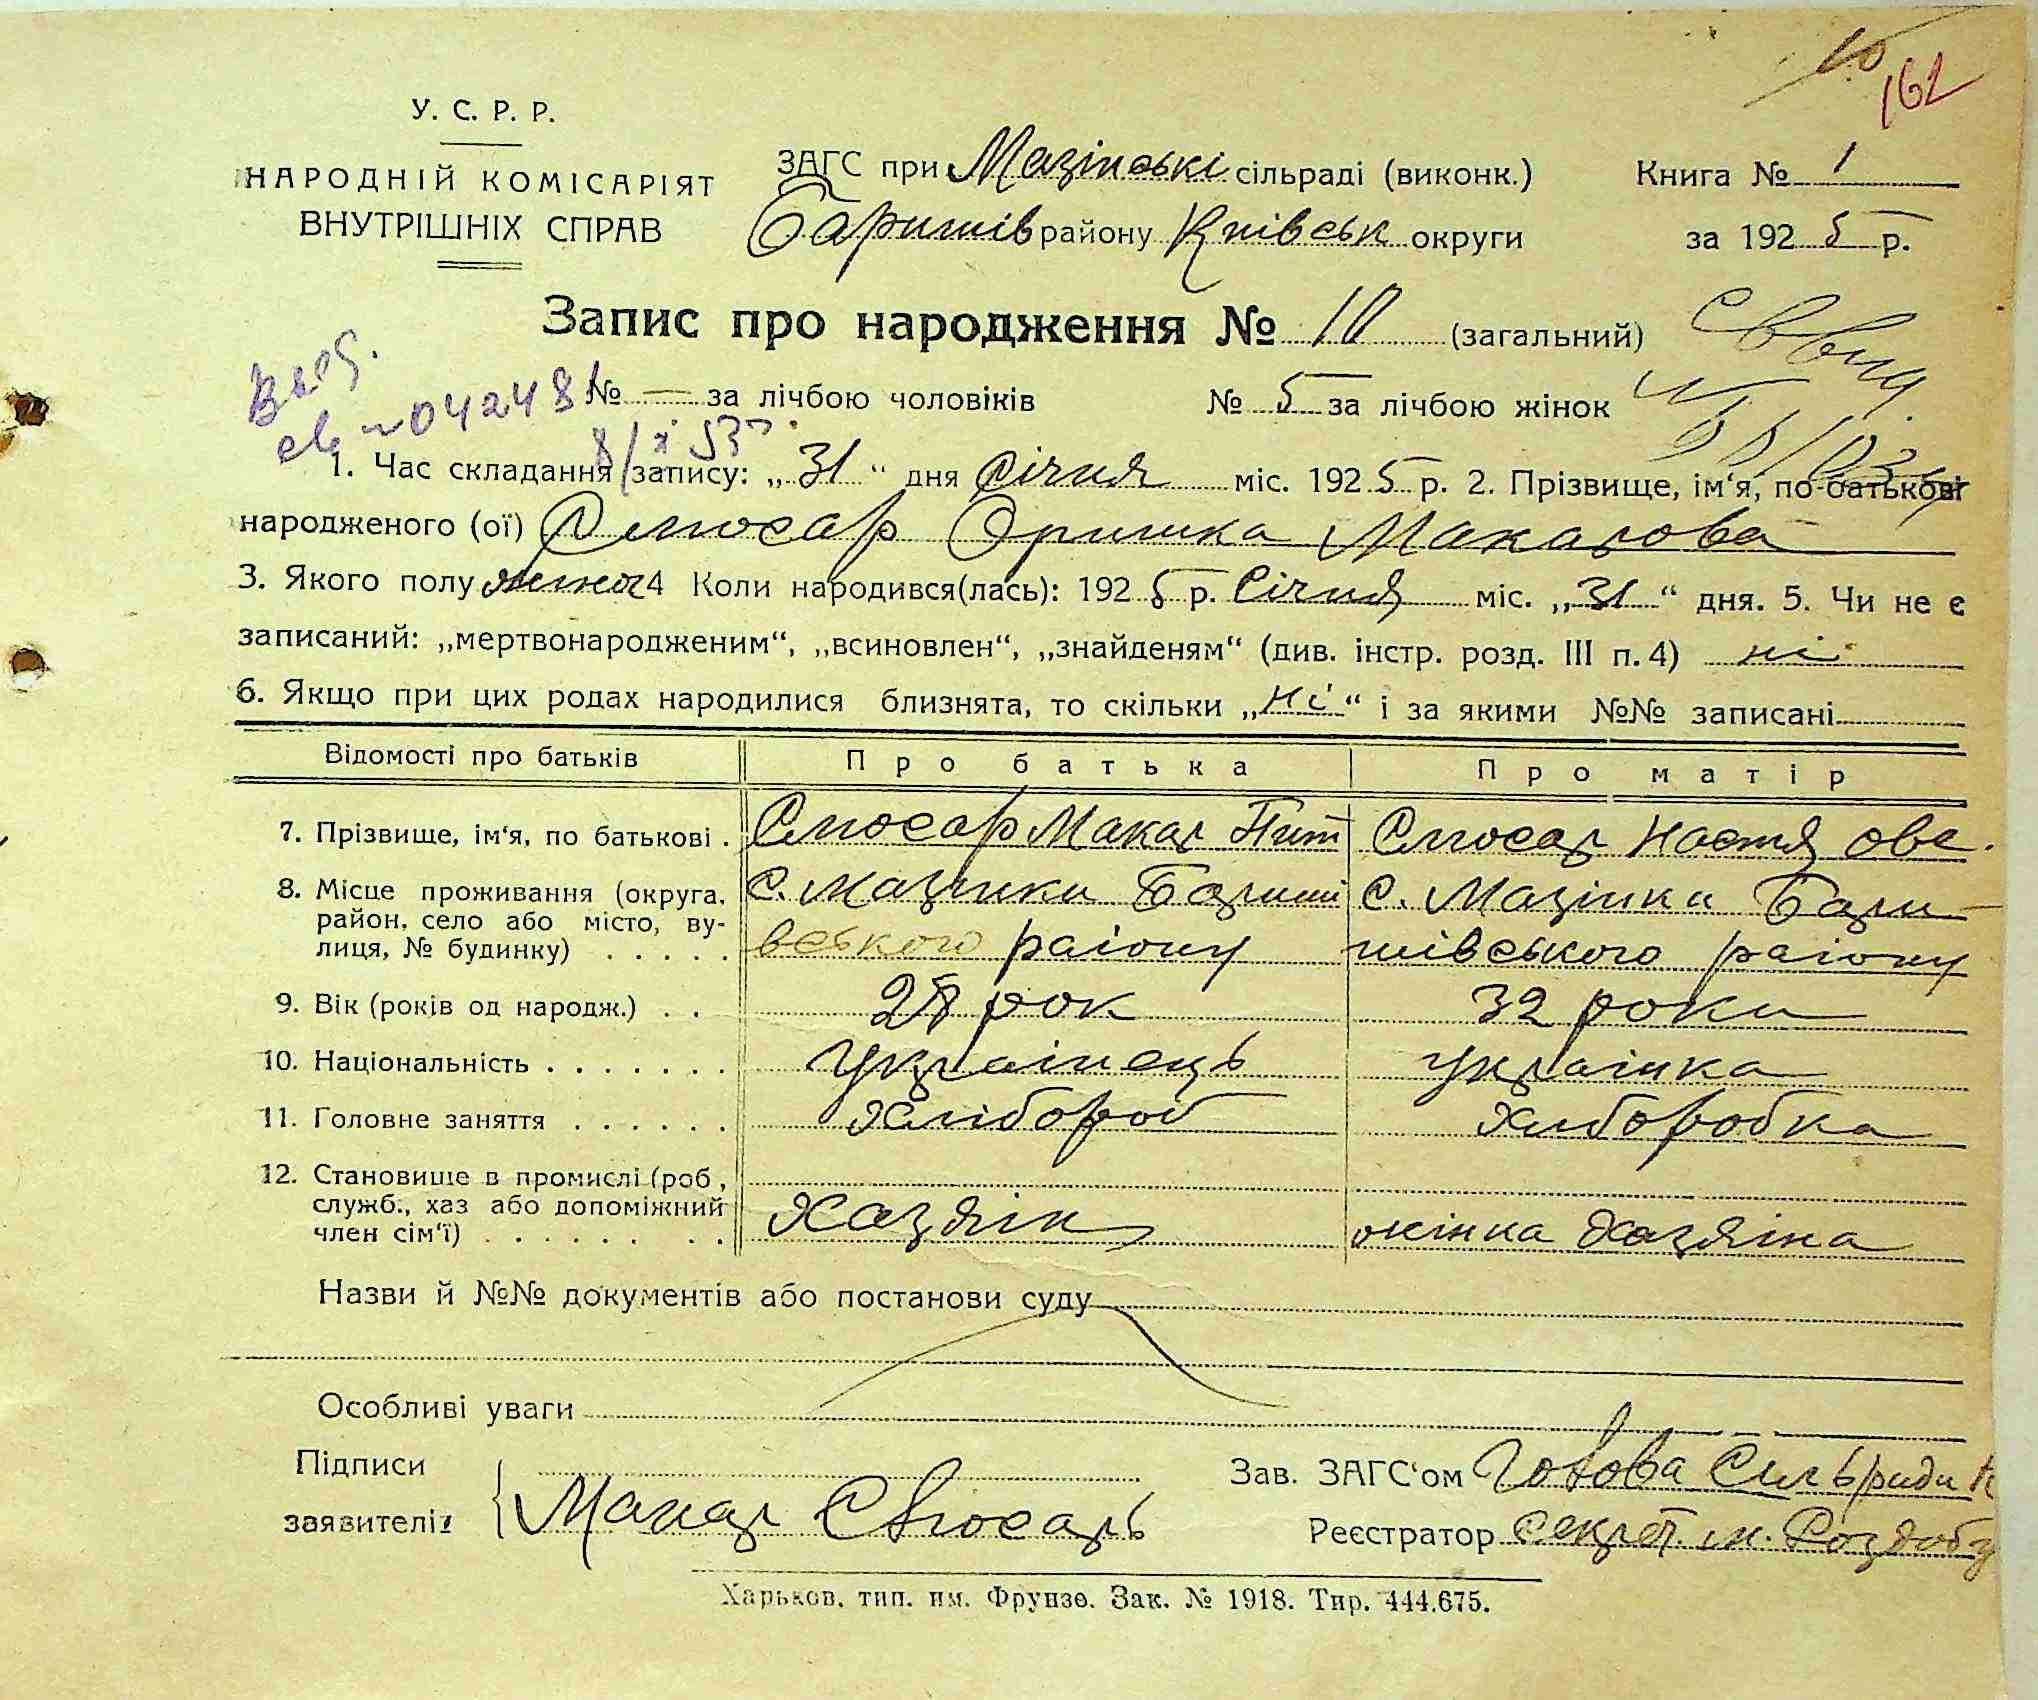 10
162
У. С. Р. Р.
НАРОДНІЙ КОМІСАРІЯТ
ВНУТРІШНІХ СПРАВ
ЗАГС при Мазінські сільраді (виконк.)
Баришів району Київськ округи
Книга № 1
за 1925 р.
Запис про народження № 10 (загальний)
№ — за лічбою чоловіків № 5 за лічбою жінок
№ 04248
1. Час складання запису: „31“ дня Січня міс. 1925 р. 2. Прізвище, ім‘я, по-батькові
народженого (ої) Слюсар Оришка Макарова
3. Якого полу жіноч 4 Коли народився(лась): 1925 р. Січня міс. „31“ дня. 5. Чи не є
записаний: „мертвонародженим“, „всиновлен“, „знайденям“ (див. інстр. розд. III п. 4) ні
6. Якщо при цих родах народилися близнята, то скільки „ні“ і за якими №№ записані
Відомості про батьків Про батька Про матір
7. Прізвище, ім‘я, по батькові . Слюсар Макар Тит Слюсар Настя Овс.
8. Місце проживання (округа, район, село або місто, вулиця, № будинку) . . . . .
с. Мазінки Бариші
вського раіону
с. Мазінки Бари-
шівського раіону
9. Вік (років од народж.) . . 28 рок 32 роки
10. Національність . . . . . . . Украінець Украінка
11. Головне заняття . . . . . . Хлібороб Хліборобка
12. Становище в промислі (роб,
служб., хаз або допоміжний
член сім‘ї) . . . . . . . . Хазяін жінка Хазяіна
Назви й №№ документів або постанови суду
Особливі уваги
Підписи
заявителів:
Макар Слюсарь
Зав. ЗАГС‘ом Голова Сильради
Реєстратор Секрет.
Харьков. тип. им. Фрунзе. Зак. № 1918. Тир. 444.675.